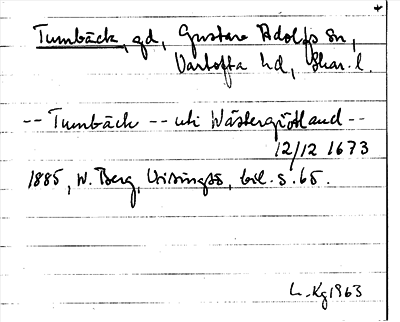 Tumbäck, gd, Gustav Adolfs sn,
Vartofta hd, Skar. l.
-- Tumbäck -- uti Wästergiötland --
12/12 1673
1885, W. Berg, Visingsö, bil. s. 65.
L. Kg 1963